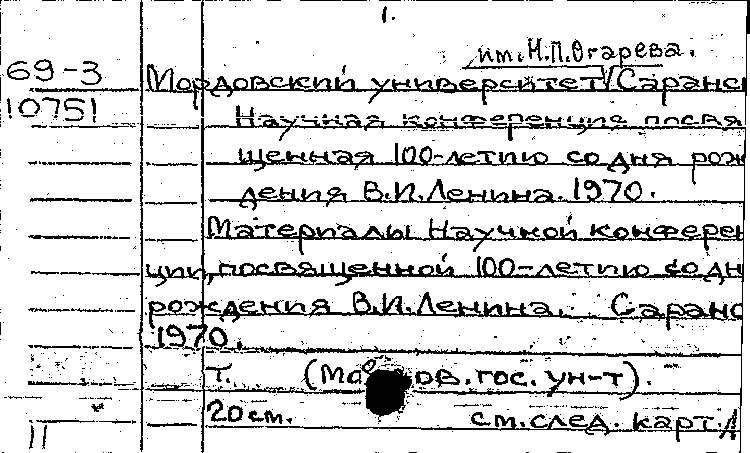 1.
им. Н.П.Огарева.
69-3 Мордовский университет Саранс
10751 Научная конференция посвя
щенная 100-летию со дня рож
дения В.И.Ленина. 1970.
Материалы Научной конферен
ции, посвященной 100-летию со дн
рождения В.И.Ленина. Саранс
1970.
т. ов. гос. ун-т).
20 см. см. след. карт.
11